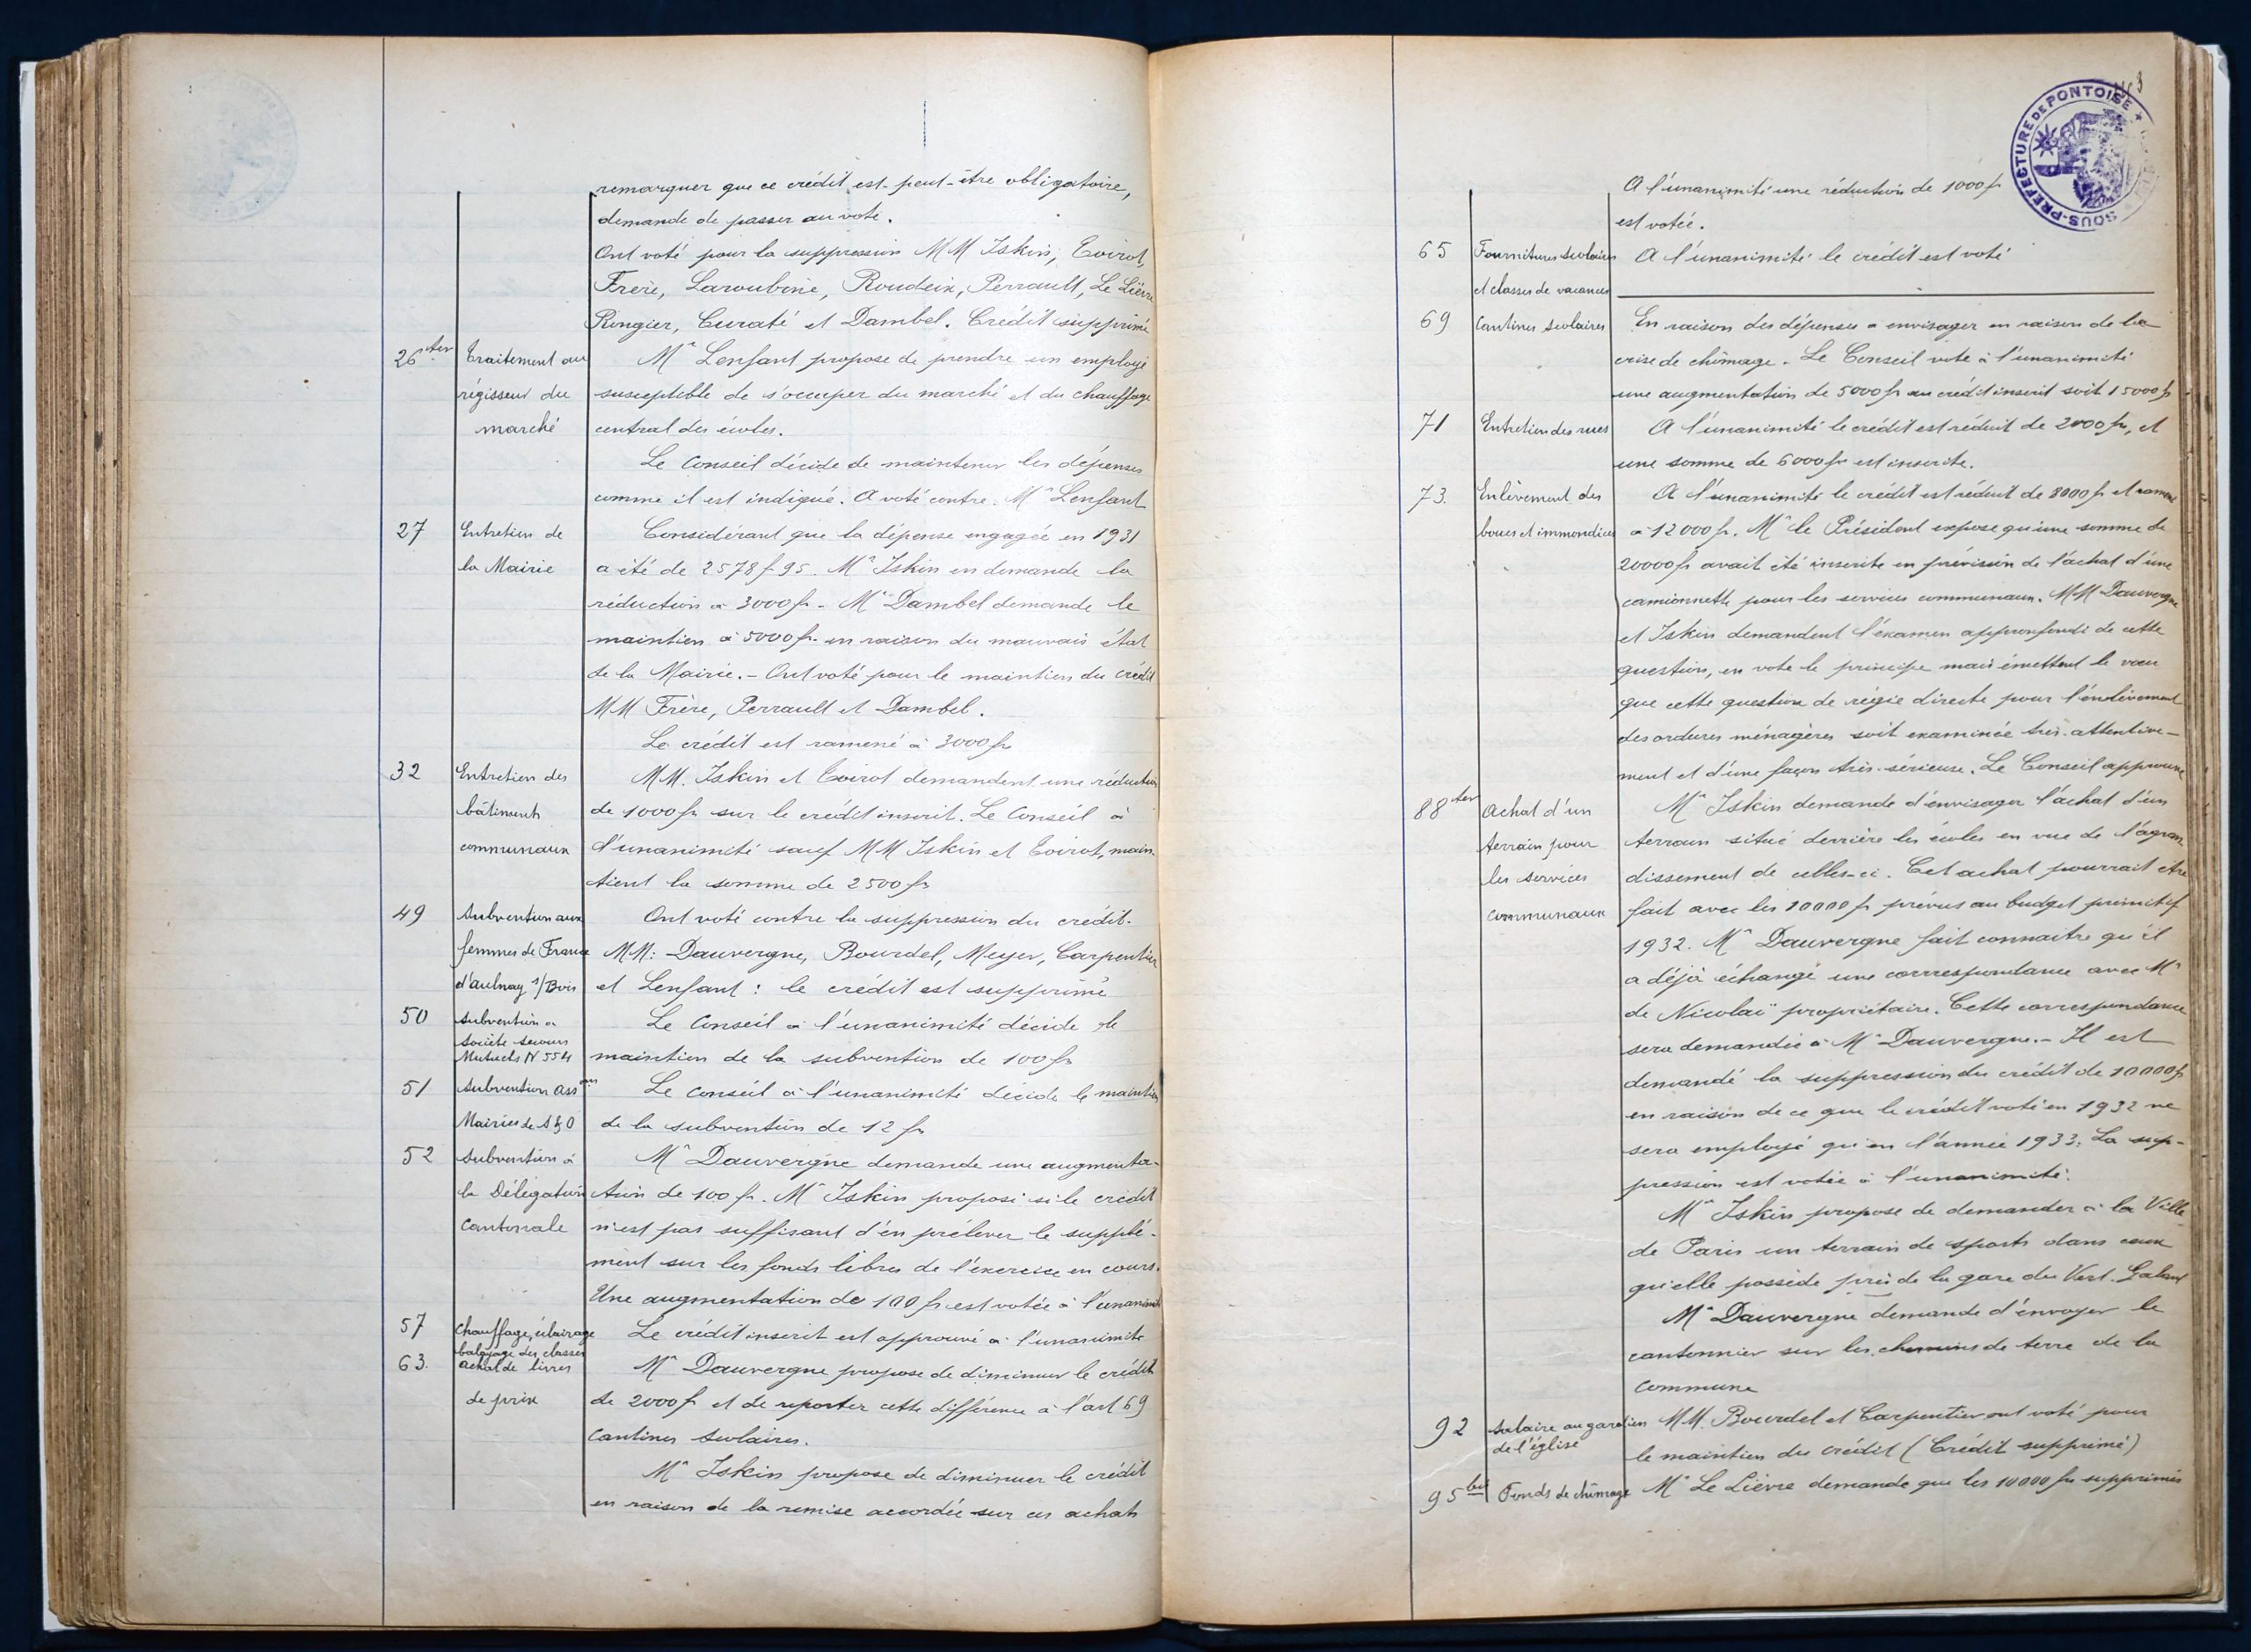 remarquer que ce crédit est peut-être obligatoire,
demande de passer au vote.
Ont voté pour la suppression MM Iskin, Toirot,
Frère, Laroubine, Roudeix, Perrault, Le Lièvre
Rongier, Curaté et Dambel. Crédit supprimé
26 ter Traitement au Mr Lenfant propose de prendre un employé
régisseur du susceptible de s'occuper du marché et du chauffage
marché central des écoles.
Le Conseil décide de maintenir les dépenses
comme il est indiqué. A voté contre. Mr Lenfant
27 Entretien de Considérant que la dépense engagée en 1931
la Mairie a été de 2578f95. Mr Iskin en demande la
réduction à 3000fr - Mr Dambel demande le
maintien à 5000fr en raison du mauvais état
de la Mairie. - Ont voté pour le maintien du crédit
MM Frère, Perrault et Dambel.
Le crédit est ramené à 3000fr
32 Entretien des MM. Iskin et Toirot demandent une réduction
bâtiments de 1000fr sur le crédit inscrit. Le Conseil à
communaux l'unanimité sauf MM Iskin et Toirot, main-
tient la somme de 2500fr
49 Subvention aux Ont voté contre la suppression du crédit.
femmes de France MM: Dauvergne, Bourdel, Meyer, Carpentier
d'Aulnay s/Bois et Lenfant: le crédit est supprimé
50 Subvention à Le Conseil à l'unanimité décide le
Société Secours
Mutuels N 554 maintien de la subvention de 100fr
51 Subvention Asson Le Conseil à l'unanimité décide le maintien
Mairies de S&O de la subvention de 12 fr
52 Subvention à Mr Dauvergne demande une augmenta-
la Délégation tion de 100 fr. Mr Iskin propose si le crédit
Cantonale n'est pas suffisant d'en prélever le supplé-
ment sur les fonds libres de l'exercice en cours.
Une augmentation de 100 fr est votée à l'unanimité
57 Chauffage, éclairage Le crédit inscrit est approuvé à l'unanimité
balayage des classes
63. Achat de livres Mr Dauvergne propose de diminuer le crédit
de prix de 2000fr et de reporter cette différence à l'art 69
Cantines Scolaires.
Mr Iskin propose de diminuer le crédit
en raison de la remise accordée sur ces achats
SOUS-PREFECTURE DE PONTOISE
A l'unanimité une réduction de 1000fr
est votée.
65 Fournitures scolaires A l'unanimité le crédit est voté
et classes de vacances
69 Cantines Scolaires En raison des dépenses à envisager en raison de la
crise de chômage. Le Conseil vote à l'unanimité
une augmentation de 5000fr au crédit inscrit soit 15000fr
71 Entretien des rues A l'unanimité le crédit est réduit de 2000fr, et
une somme de 6000fr est inscrite.
73. Enlèvement des A l'unanimité le crédit est réduit de 8000fr et ramené
boues et immondices à 12000fr. Mr le Président expose qu'une somme de
20000fr avait été inscrite en prévision de l'achat d'une
camionnette pour les services communaux. MM Dauvergne
et Iskin demandent l'examen approfondi de cette
question, en vote le principe mais émettent le vœu
que cette question de régie directe pour l'enlèvement
des ordures ménagères soit examinée très attentive-
ment et d'une façon très sérieuse. Le Conseil approuve
88 ter Achat d'un Mr Iskin demande d'envisager l'achat d'un
terrain pour terrain situé derrière les écoles en vue de l'agran-
les services dissement de celles-ci. Cet achat pourrait être
communaux fait avec les 10000 fr prévus au budget primitif
1932. Mr Dauvergne fait connaître qu'il
a déjà échangé une correspondance avec Mr
de Nicolaï propriétaire. Cette correspondance
sera demandée à Mr Dauvergne. - Il est
demandé la suppression du crédit de 10000fr
en raison de ce que le crédit voté en 1932 ne
sera employé qu'en l'année 1933. La sup-
pression est votée à l'unanimité.
Mr Iskin propose de demander à la Ville
de Paris un terrain de sports dans ceux
qu'elle possède près de la gare du Vert-Galant
Mr Dauvergne demande d'envoyer le
cantonnier sur les chemins de terre de la
Commune
92 Salaire au gardien MM. Bourdel et Carpentier ont voté pour
de l'église le maintien du crédit (Crédit supprimé)
95 bis Fonds de chômage Mr Le Lièvre demande que les 10000 fr supprimés